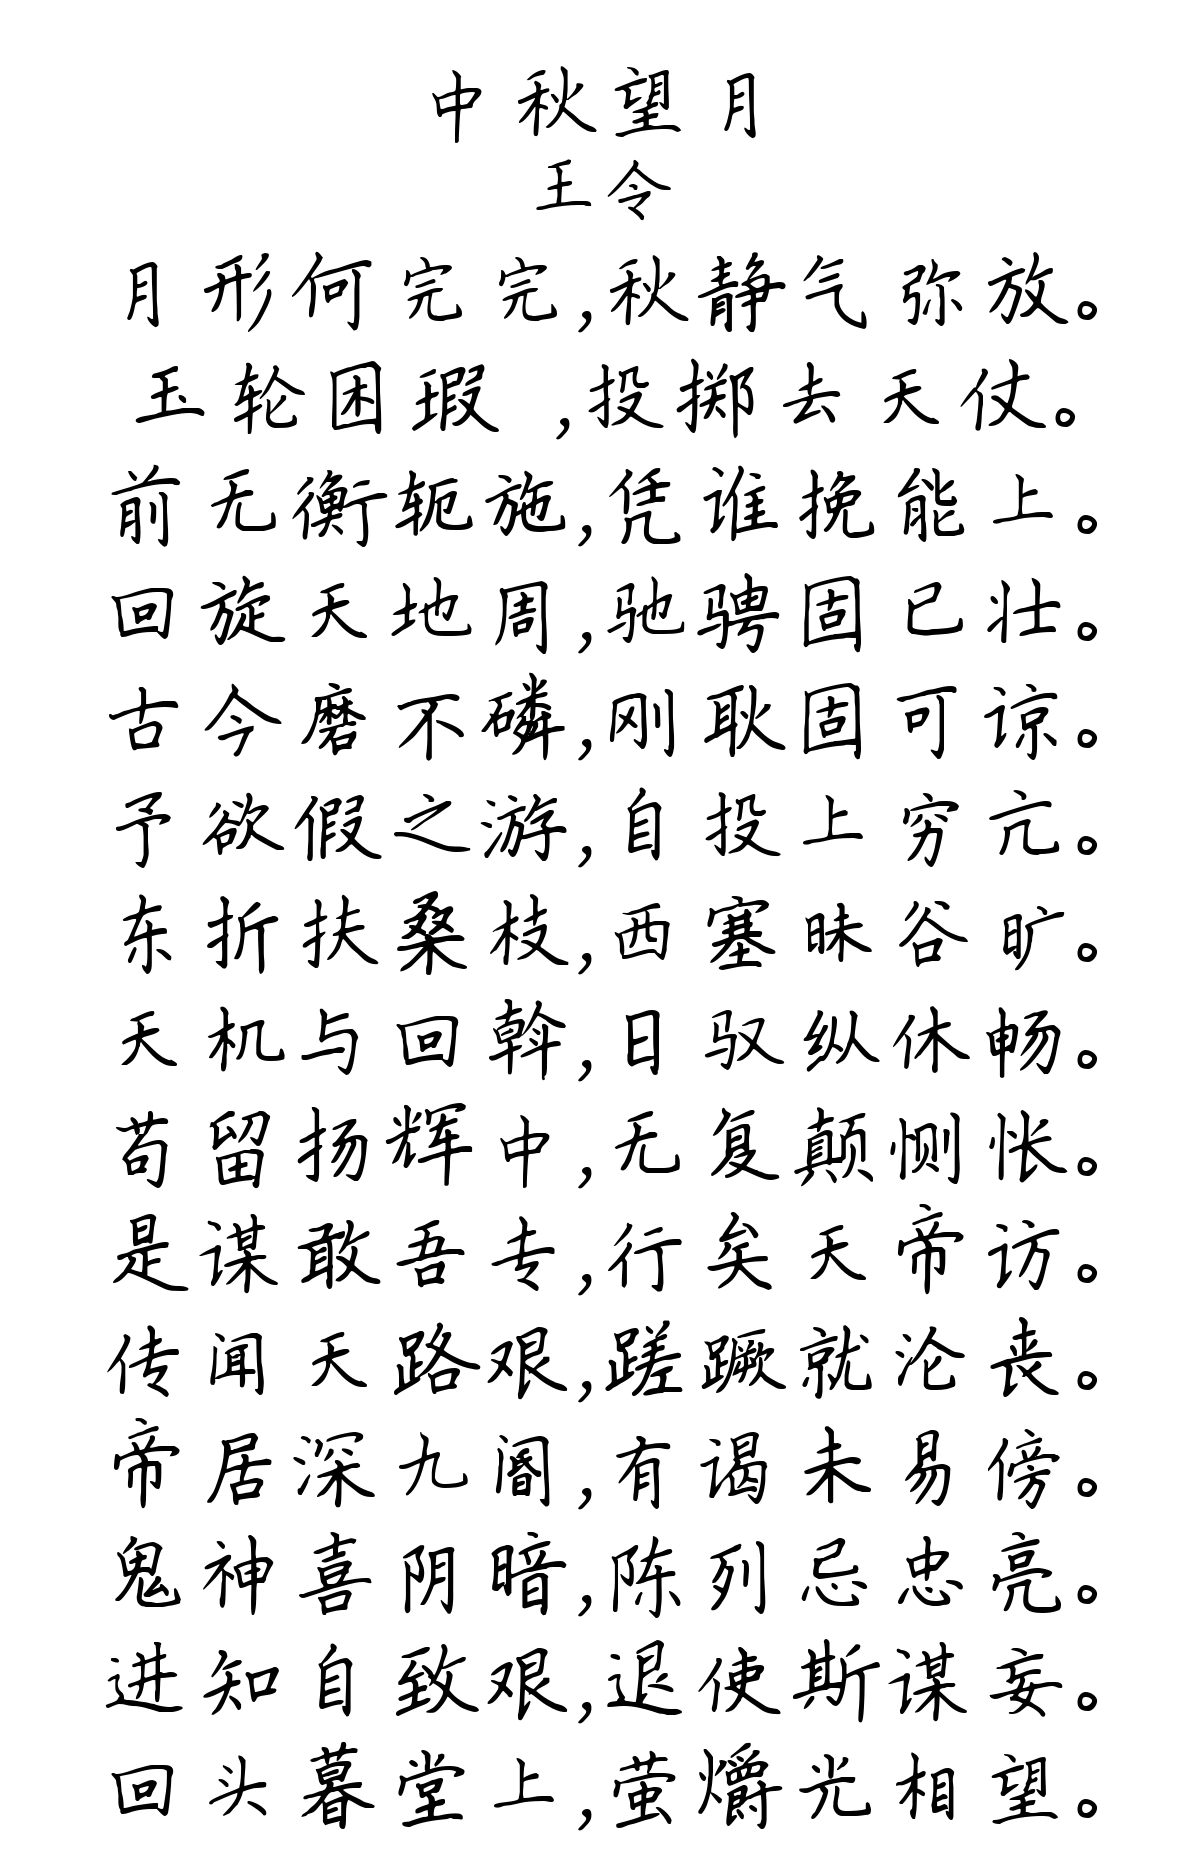 中秋望月
王令
月形何完完,秋静气弥放。
玉轮困瑕 ,投掷去天仗。
前无衡轭施,凭谁挽能上。
回旋天地周,驰骋固已壮。
古今磨不磷,刚耿固可谅。
予欲假之游,自投上穷亢。
东折扶桑枝,西塞昧谷旷。
天机与回斡,日驭纵休畅。
苟留扬辉中,无复颠恻怅。
是谋敢吾专,行矣天帝访。
传闻天路艰,蹉蹶就沦丧。
帝居深九阍,有谒未易傍。
鬼神喜阴暗,陈列忌忠亮。
进知自致艰,退使斯谋妄。
回头暮堂上,萤爝光相望。